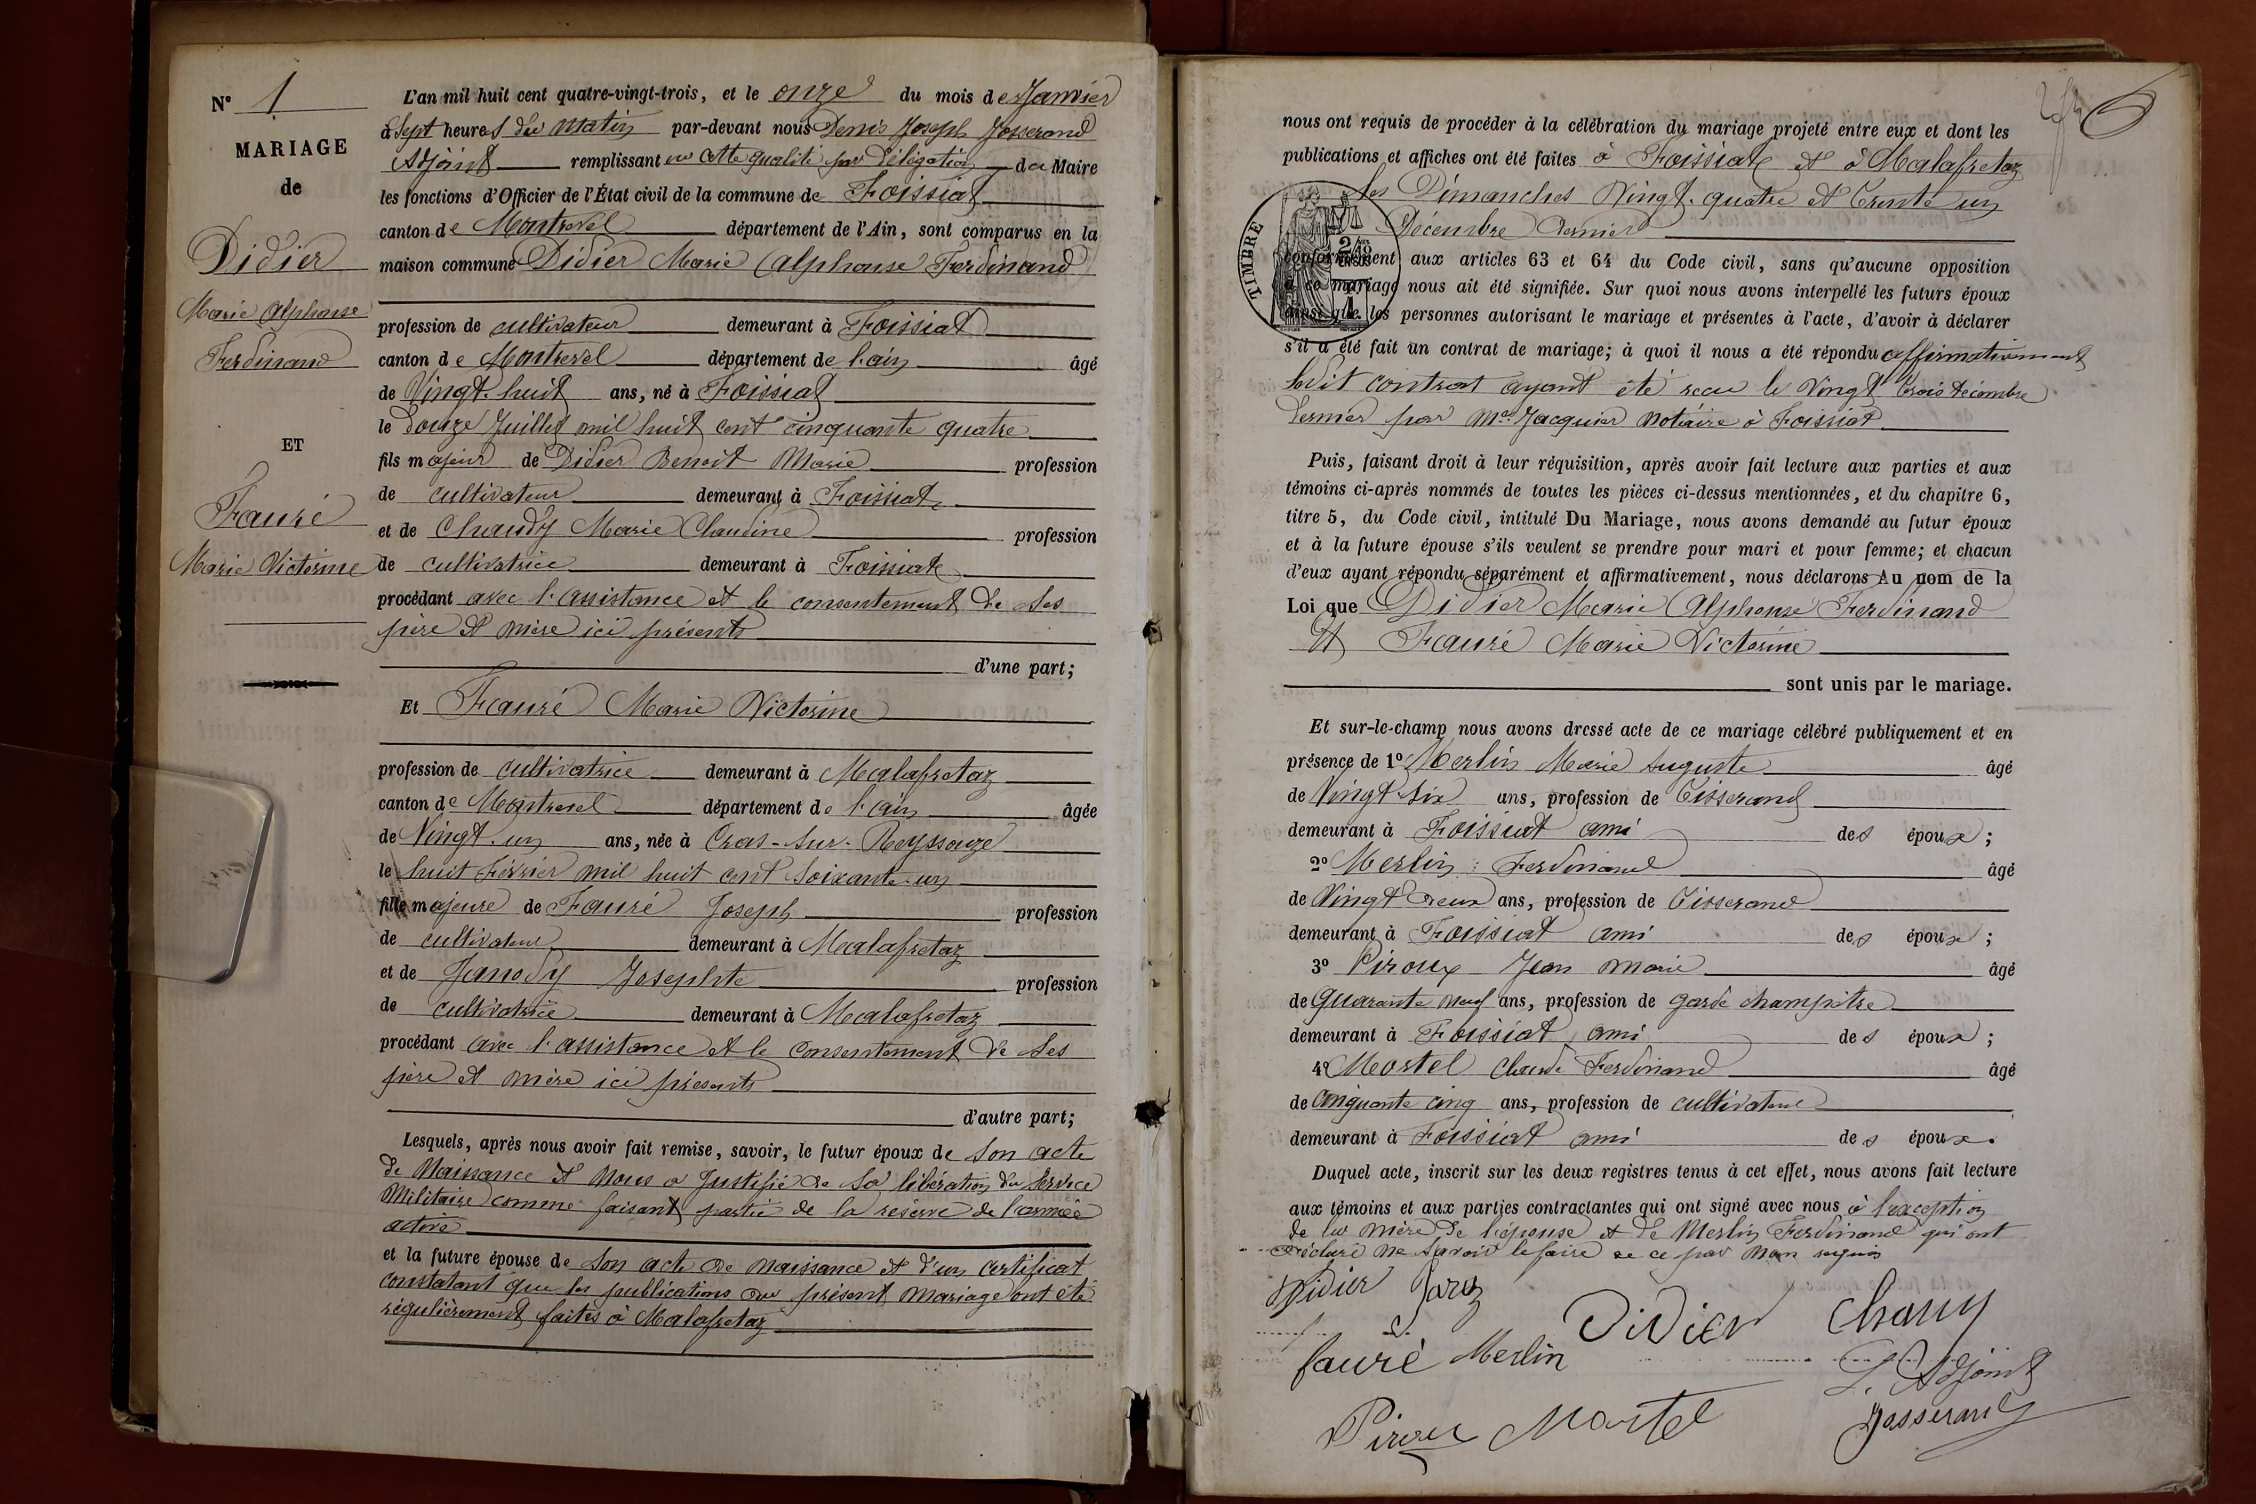 N° 1
MARIAGE
de
Didier
Marie Alphonse
Ferdinand
ET
Fauré
Marie Victorine
L'an mil huit cent quatre-vingt-trois, et le onze du mois de Janvier
à Sept heures du matin par-devant nous Denis Joseph Josserand
Adjoint remplissant en cette qualité par délégation du Maire
les fonctions d'Officier de l'État civil de la commune de Foissiat
canton de Montrevel département de l'Ain, sont comparus en la
maison commune Didier Marie Alphonse Ferdinand
profession de cultivateur demeurant à Foissiat
canton de Montrevel département de l'ain âgé
de Vingt-huit ans, né à Foissiat
le douze Juillet mil huit cent cinquante quatre
fils majeur de Didier Benoit Marie profession
de cultivateur demeurant à Foissiat
et de Chaudy Marie Claudine profession
de cultivatrice demeurant à Foissiat
procédant avec l'assistance et le consentement de ses
père et mère ici présents
d'une part;
Et Fauré Marie Victorine
profession de cultivatrice demeurant à Malafretaz
canton de Montrevel département de l'ain âgée
de Vingt-un ans, née à Cras-sur-Reyssouze
le huit Février mil huit cent soixante-un
fille majeure de Fauré Joseph profession
de cultivateur demeurant à Malafretaz
et de Janody Josephte profession
de cultivatrice demeurant à Malafretaz
procédant avec l'assistance et le consentement de ses
père et mère ici présents
d'autre part;
Lesquels, après nous avoir fait remise, savoir, le futur époux de son acte
de Naissance et Nous a Justifié de sa libération du Service
Militaire comme faisant partie de la réserve de l'armée
active
et la future épouse de son acte de naissance et d'un certificat
constatant que les publications du présent mariage ont été
régulièrement faites à Malafretaz
nous ont requis de procéder à la célébration du mariage projeté entre eux et dont les
publications et affiches ont été faites à Foissiat et à Malafretaz
les Dimanches Vingt-quatre et Trente un
Décembre dernier
conformément aux articles 63 et 64 du Code civil, sans qu'aucune opposition
à ce mariage nous ait été signifiée. Sur quoi nous avons interpellé les futurs époux
ainsi que les personnes autorisant le mariage et présentes à l'acte, d'avoir à déclarer
s'il a été fait un contrat de mariage; à quoi il nous a été répondu affirmativement
ledit contrat ayant été reçu le Vingt trois décembre
dernier par Me Jacquier Notaire à Foissiat
TIMBRE
Puis, faisant droit à leur réquisition, après avoir fait lecture aux parties et aux
témoins ci-après nommés de toutes les pièces ci-dessus mentionnées, et du chapitre 6,
titre 5, du Code civil, intitulé Du Mariage, nous avons demandé au futur époux
et à la future épouse s'ils veulent se prendre pour mari et pour femme; et chacun
d'eux ayant répondu séparément et affirmativement, nous déclarons Au nom de la
Loi que Didier Marie Alphonse Ferdinand
Et Fauré Marie Victorine
sont unis par le mariage.
Et sur-le-champ nous avons dressé acte de ce mariage célébré publiquement et en
présence de 1° Merlin Marie Auguste âgé
de Vingt-six ans, profession de Tisserand
demeurant à Foissiat ami des époux;
2° Merlin Ferdinand âgé
de Vingt deux ans, profession de Tisserand
demeurant à Foissiat ami des époux;
3° Piroux Jean Marie âgé
de quarante neuf ans, profession de garde champêtre
demeurant à Foissiat ami des époux;
4° Mortel Claude Ferdinand âgé
de cinquante cinq ans, profession de cultivateur
demeurant à Foissiat ami des époux.
Duquel acte, inscrit sur les deux registres tenus à cet effet, nous avons fait lecture
aux témoins et aux parties contractantes qui ont signé avec nous à l'exception
de la mère de l'épouse et de Merlin Ferdinand qui ont
déclaré ne savoir le faire de ce par nous requis
Didier Didier Chaudy
fauré Merlin L'Adjoint
Piroux Mortel Josserand